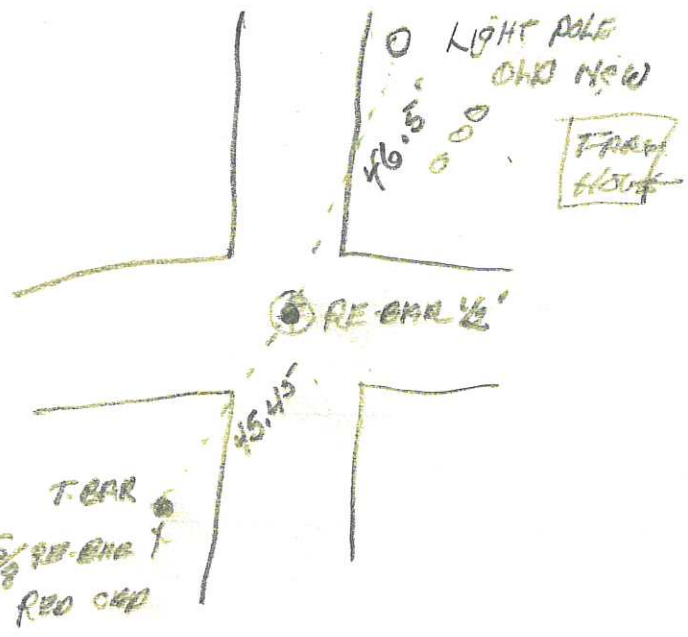 LIGHT POLE
OLD NEW
46.5'
FARM
HOUSE
RE-BAR 1/2"
45.45
T-BAR
5/8 RE-BAR
RED CAP